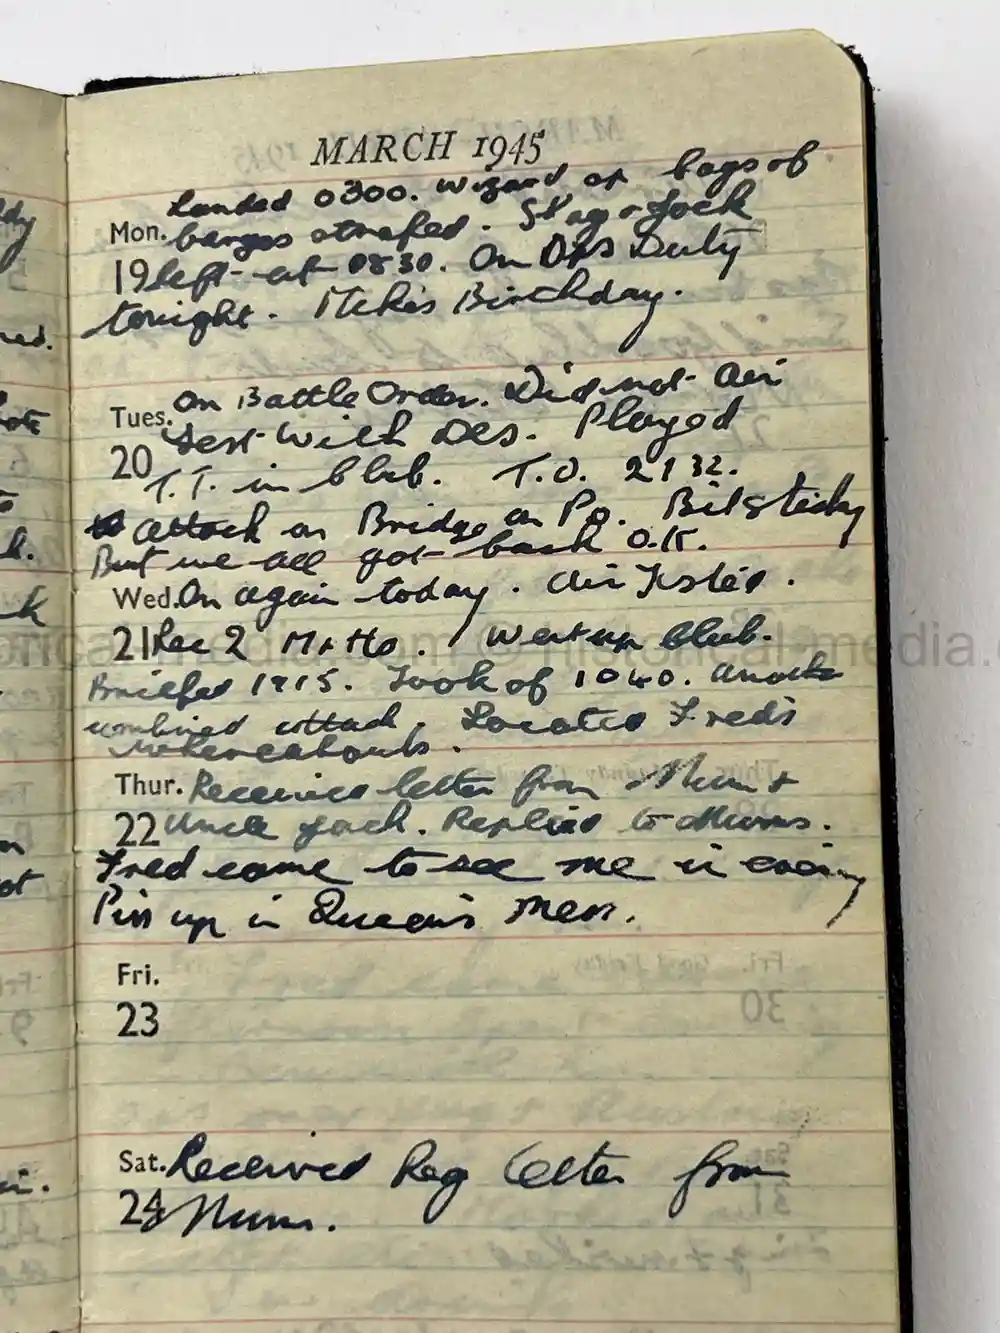 MARCH 1945
Landed 0300. Wizard op bags of
Mon. barges strafed. & Jock
19 left at 0830. On Ops Duty
tonight. Birthday.
Tues. On Battle Order. Did not air
20 test with Des. Played
T.T. in club. T.O. 2132.
attack on Bridge on Po. Bit sticky
But we all got back O.K.
Wed. On again today. Air Tested.
21 Rec 2 Went up club.
Briefed 1915. Took of 1040. Another
combined attack. Located Fred's
whereabouts.
Thur. Received letter from Mum &
22 Uncle Jack. Replied to Mums.
Fred came to see me in evening
Piss up in Queen's Mess.
Fri.
23
Sat. Received Reg letter from
24 Mum.